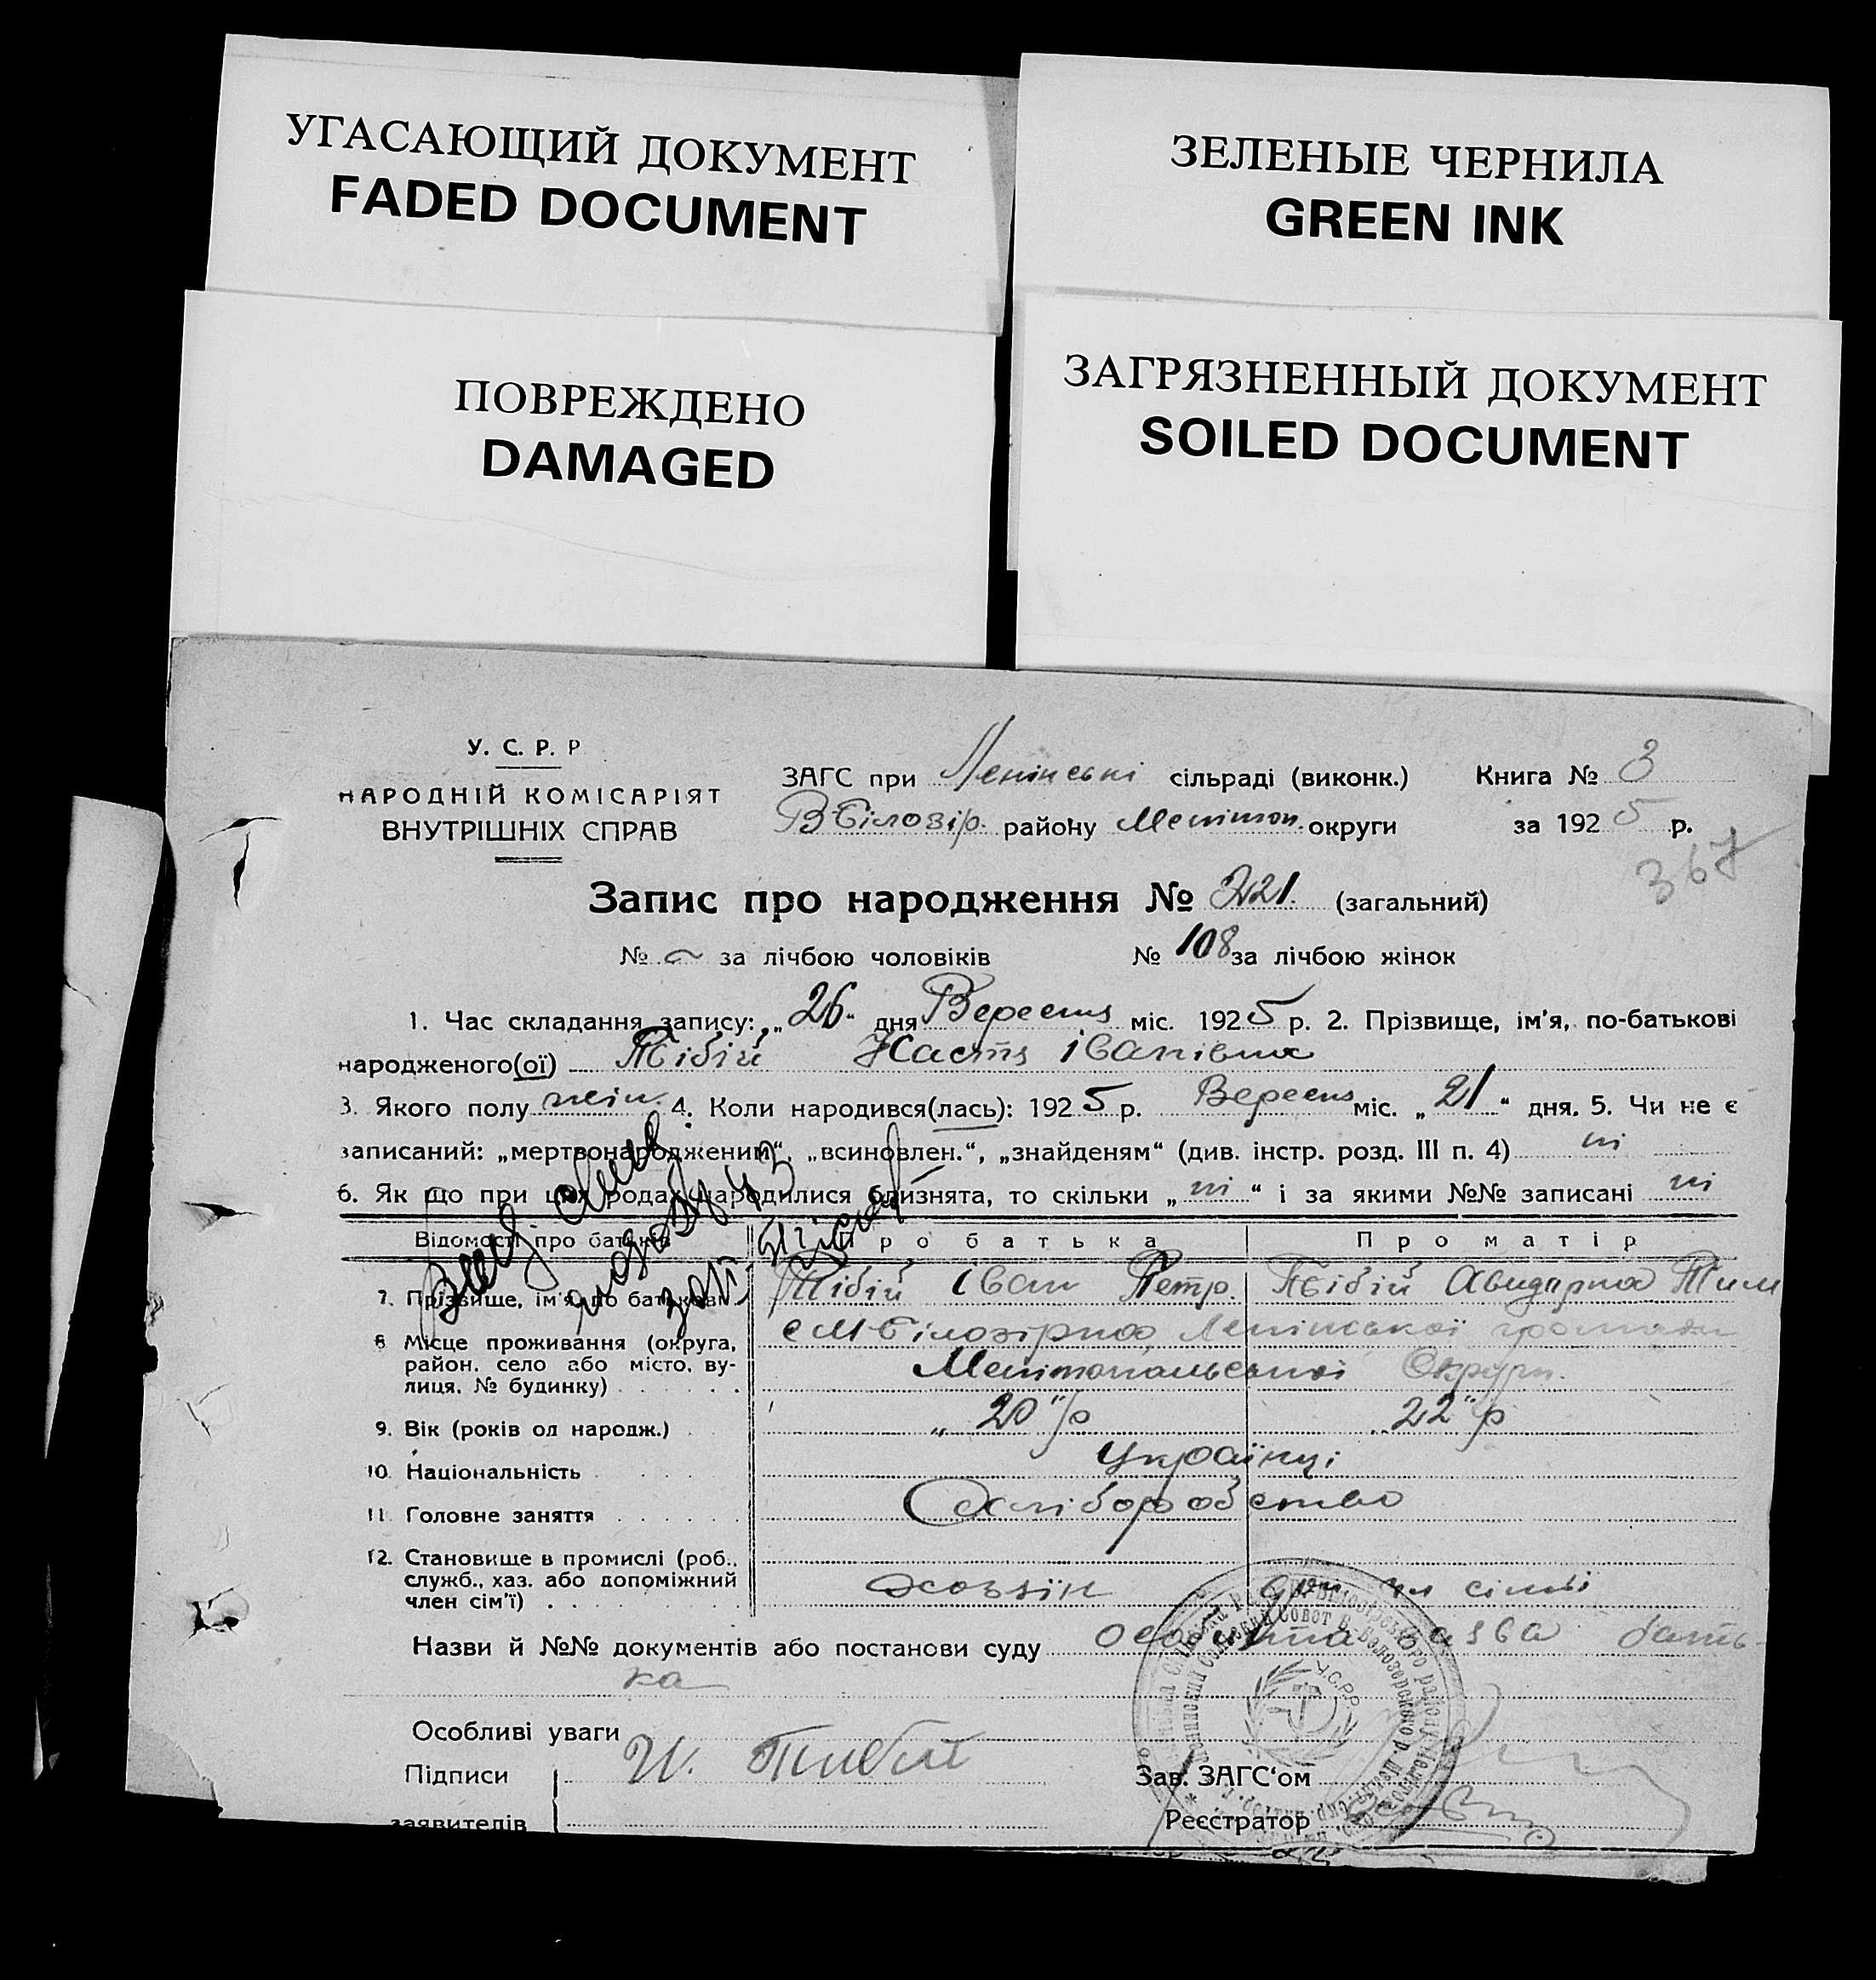 УГАСАЮЩИЙ ДОКУМЕНТ
FADED DOCUMENT
ЗЕЛЕНЫЕ ЧЕРНИЛА
GREEN INK
ПОВРЕЖДЕНО
DAMAGED
ЗАГРЯЗНЕННЫЙ ДОКУМЕНТ
SOILED DOCUMENT
У. С. Р. Р
НАРОДНІЙ КОМІСАРІЯТ
ВНУТРІШНІХ СПРАВ
ЗАГС при Ленінські сільраді (виконк.) Книга № 3
В Білозір. району Мелітоп. округи за 1925 р.
367
Запис про народження № 221. (загальний)
№ за лічбою чоловіків № 108 за лічбою жінок
1. Час складання запису: „26“ дня Вересня міс. 1925 р. 2. Прізвище, ім'я, по-батькові
народженого(ої) Тібій Настя Іванівна
3. Якого полу жін. 4. Коли народився(лась): 1925 р. Вересня міс. „21“ дня. 5. Чи не є
записаний: „мертвонародженим“, „всиновлен.“, „знайденям“ (див. інстр. розд. III п. 4) ні
6. Як що при цих родах народилися близнята, то скільки „ні“ і за якими №№ записані ні
Відомості про батьків Про батька Про матір
7. Прізвище, ім'я, по батькові Тібій Іван Петр. Тібій Тим
8 Місце проживання (округа, с М Білозірка Ленінської громади
район, село або місто, ву-
лиця, № будинку) Мелітопальської Округи.
9. Вік (років од народж.) „20“ р „22“ р
10. Національність Українці
11. Головне заняття Хліборобство
12. Становище в промислі (роб.,
служб., хаз. або допоміжний
член сім'ї) Хозяїн сімї
Назви й №№ документів або постанови суду особиста заява бать-
ка
Особливі уваги
Підписи И. Тибий Зав. ЗАГС'ом
заявителів Реєстратор
У.С.Р.Р.